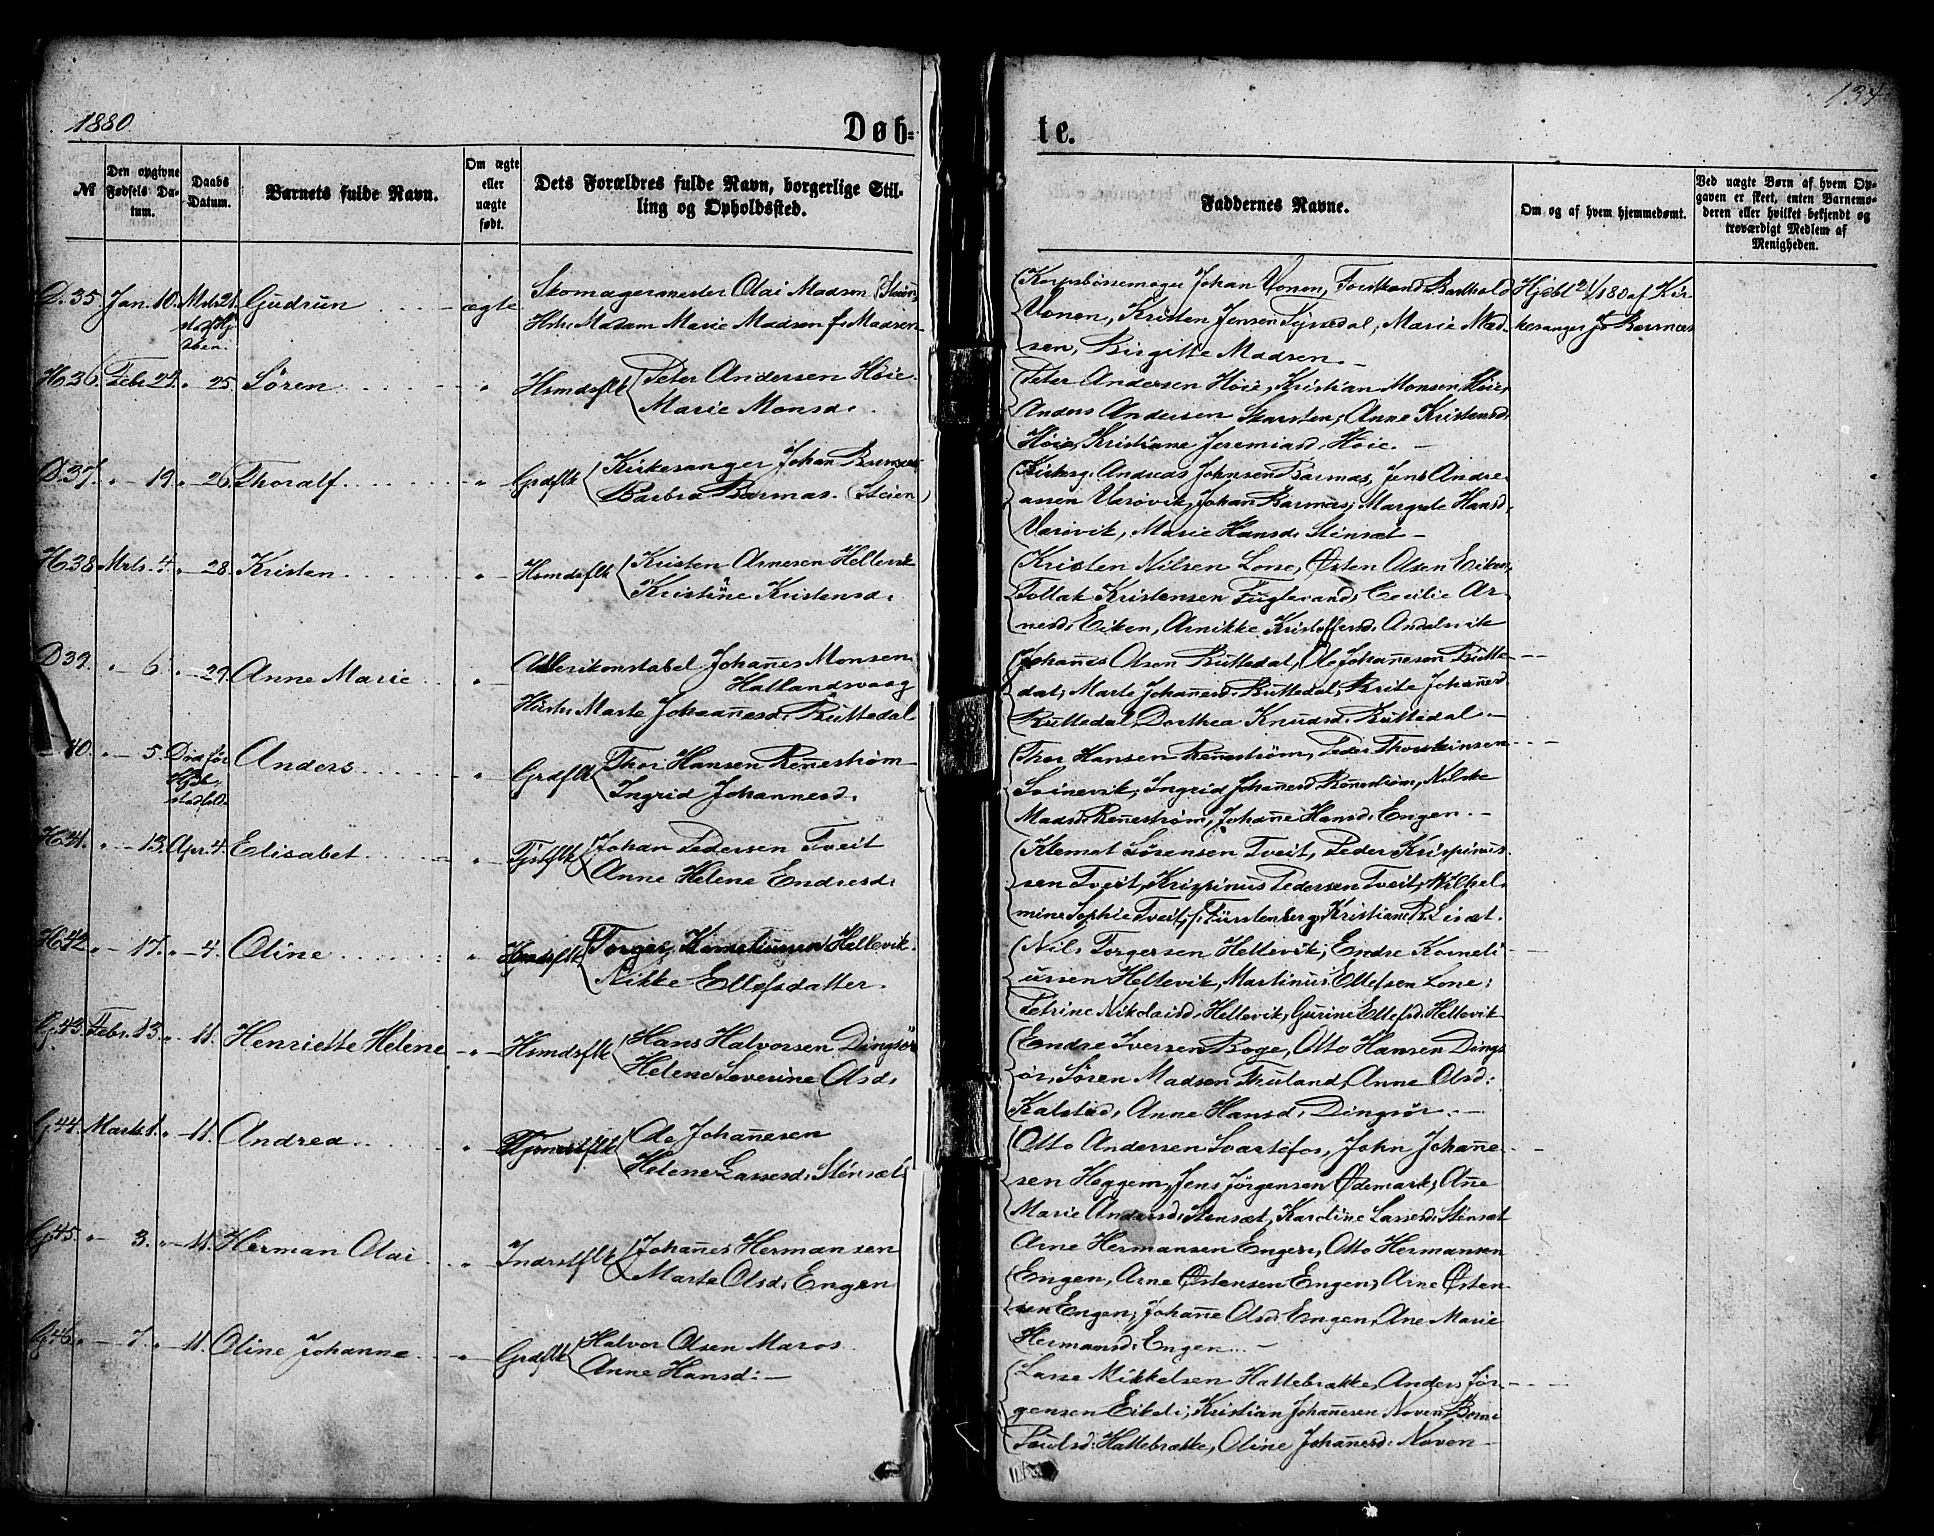 1880.
Døb=
te.
134
№
Den opgivne Fødsels Da-
tum.
Daabs Datum.
Barnets fulde Navn.
Om ægte eller uægte født.
Dets Forældres fulde Navn, borgerlige Stil-
ling og Opholdssted.
Faddernes Navne.
Om og af hvem hjemmedøbt.
Ved uægte Børn af hvem Op-
gaven er skeet, enten Barnemo-
deren eller hvilket bekjendt og
troværdigt Medlem af
Menigheden.
D. 35. Jan. 10. Mrts 21. Gudrun ægte Skomagermester Olai Madsen (Steien)
Hstr. Madam Marie Madsen f. Madsen
Johan Vonen, Barthold
Vonen, Kristen Jensen Marie Mad-
sen, Birgitte Madsen.
Hjdbt 2/1 80 af Kir-
kesanger J. Barmas
H 36. Febr. 24. " 25. Søren " Hsmdsflk Peter Andersen Høie
Marie Monsd.
Peter Andersen Høie, Kristian Monsen Høie,
Anders Andersen Skarsten, Anne Kristensd.
Høie, Kristiane Jeremiasd. Høie.
D. 37. " 19. " 26. Thoralf " Grdflk Kirkesanger Johan Barmas
Barbra Barmas. (Steien)
Kirkesg. Andreas Johnsen Barmas, Jens Andre-
assen Varøvik, Johan Barmas, Margrete Hansd.
Varivik, Marie Hansd. Stensæt
H 38 Mrts. 4. " 28. Kristen " Hsmdsflk Kristen Arnesen Hellevik
Kristine Kristensd.
Kristen Nilsen Lone, Østen Olsen Eiken,
Tollak Kristensen Cecilie Ar-
nesd. Eiken, Arnikke Kristoffersd. Andalsvik
D 39. " 6. " 29. Anne Marie " Johañes Monsen
Hatlandsvaag
Hustr. Marte Johañesd. Buttedal
Johañes Olsen Buttedal, Ole Johañesen Butte-
dal, Marte Johañesd. Buttedal, Brite Johañesd.
Buttedal, Dorthea Knudsd. Buttedal.
40. " 5. Anders " Grdflk Thor Hansen Reñestrøm
Ingrid Johannesd.
Thor Hansen Reñestrøm, Peder Thorsteinsen
Svinevik, Ingrid Johañesd. Reñestrøm, Nilske
Madsd. Reñestrøm, Johañe Hansd. Engen.
H 41. " 13. Apr. 4. Elisabet " Tjstflk Johan Pedersen Tveit
Anne Helene Endresd.
Klemet Sørensen Tveit, Peder Krispinus-
sen Tveit, Krispinus Pedersen Tveit, Vilhel-
mine Sophie Tveit, f. Fürstenberg,
H 42 " 17. " 4. Oline " Hsmdsflk Torger Korneliussen Hellevik
Nikke Ellefsdatter.
Nils Torgersen Hellevik, Endre Korneli-
ussen Hellevik, Martinus Ellefsen Lone;
Petrine Nikolaisd. Hellevik, Gurine Ellefsd. Hellevik
G. 43. Febr. 13. " 11. Henriette Helene " Hsmdsflk Hans Halvorsen Dingsør
Helene Severine Olsd.
Endre Iversen Boge, Otto Hansen Dings-
ør, Søren Madsen Anne Olsd.
Kalstad, Anne Hansd. Dingsør.
G. 44. Marts 1. " 11. Andrea " Ole Johañesen
Helene Lassesd. Stensæt
Otto Andersen Svartefos, John Johañe-
sen Heggem, Jens Jørgensen Ødemark, Añe
Marie Andersd. Stensæt, Karoline Lassesd. Stensæt
G. 45. " 3. " 11. Herman Olai " Indrstflk Johañes Hermansen
Marte Olsd. Engen
Arne Hermansen Engen, Otto Hermansen
Engen, Arne Østensen Engen, Arne Østen-
sen Engen, Johañe Olsd. Engen, Ane Marie
Hermansd. Engen.
G. 46. " 7. " 11. Oline Johanne " Grdflk Halvor Olsen Maros
Anne Hansd.
Lasse Mikkelsen Hattebrække, Anders Jør-
gensen Eikeli, Kristian Johañesen Noven,
Paulsd. Hattebrække, Oline Johañesd. Noven